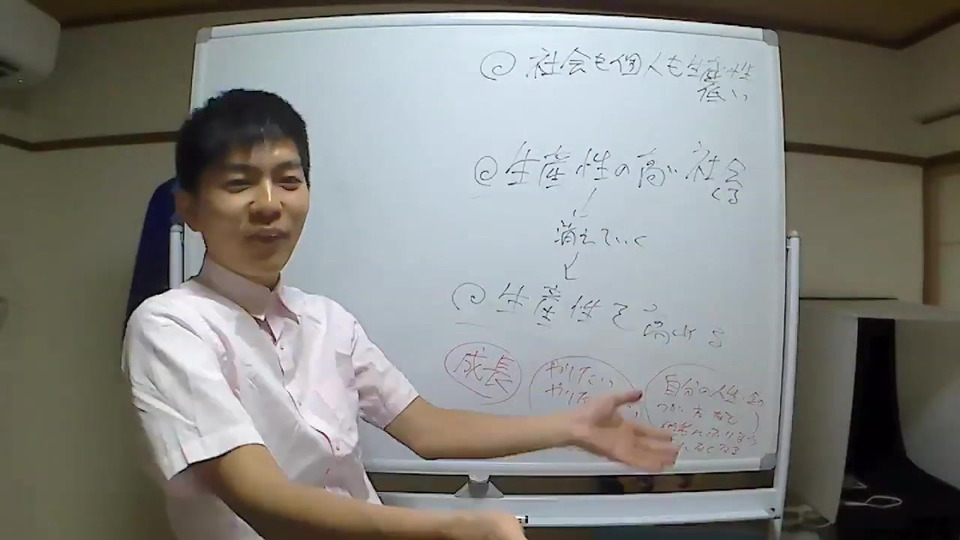 社会も個人も生産性
低い
生産性の高い社会
くる
消えていく
生産性を高める
成長
やりたい
やりた
自分の人生